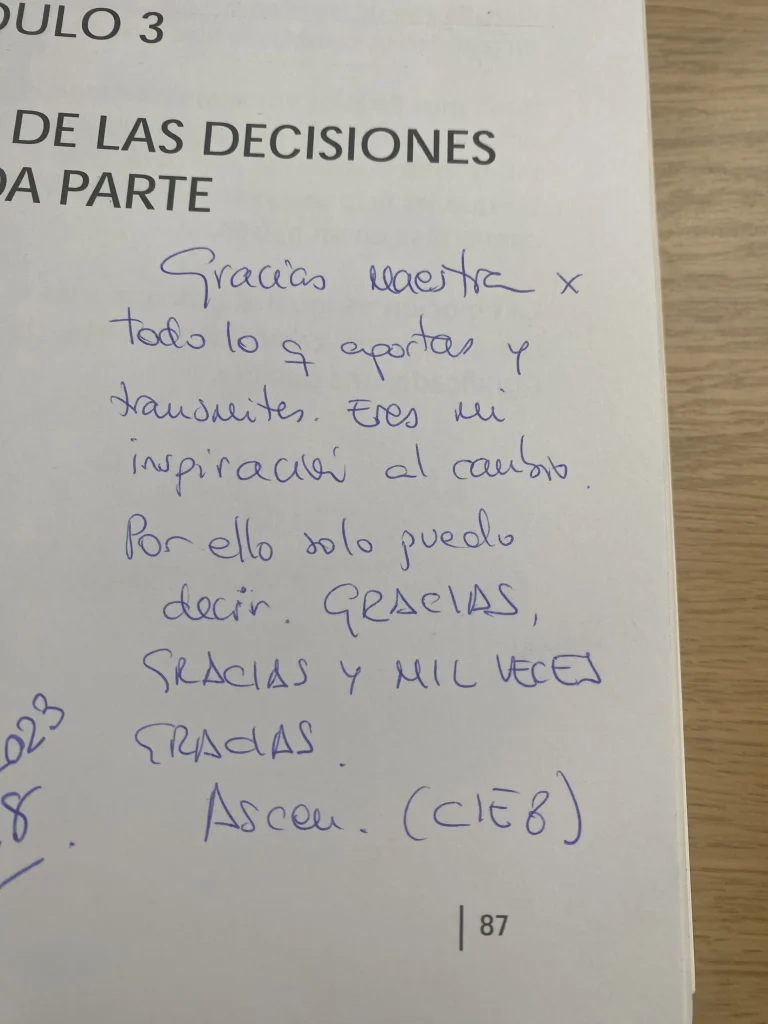 DULO 3
DE LAS DECISIONES
DA PARTE
Gracias Maestra x
todo lo q aportas y
transmites. Eres mi
inspiración al cambio.
Por ello solo puedo
decir. GRACIAS,
GRACIAS Y MIL VECES
GRACIAS.
023
8.
Ascen. (CIE8)
87